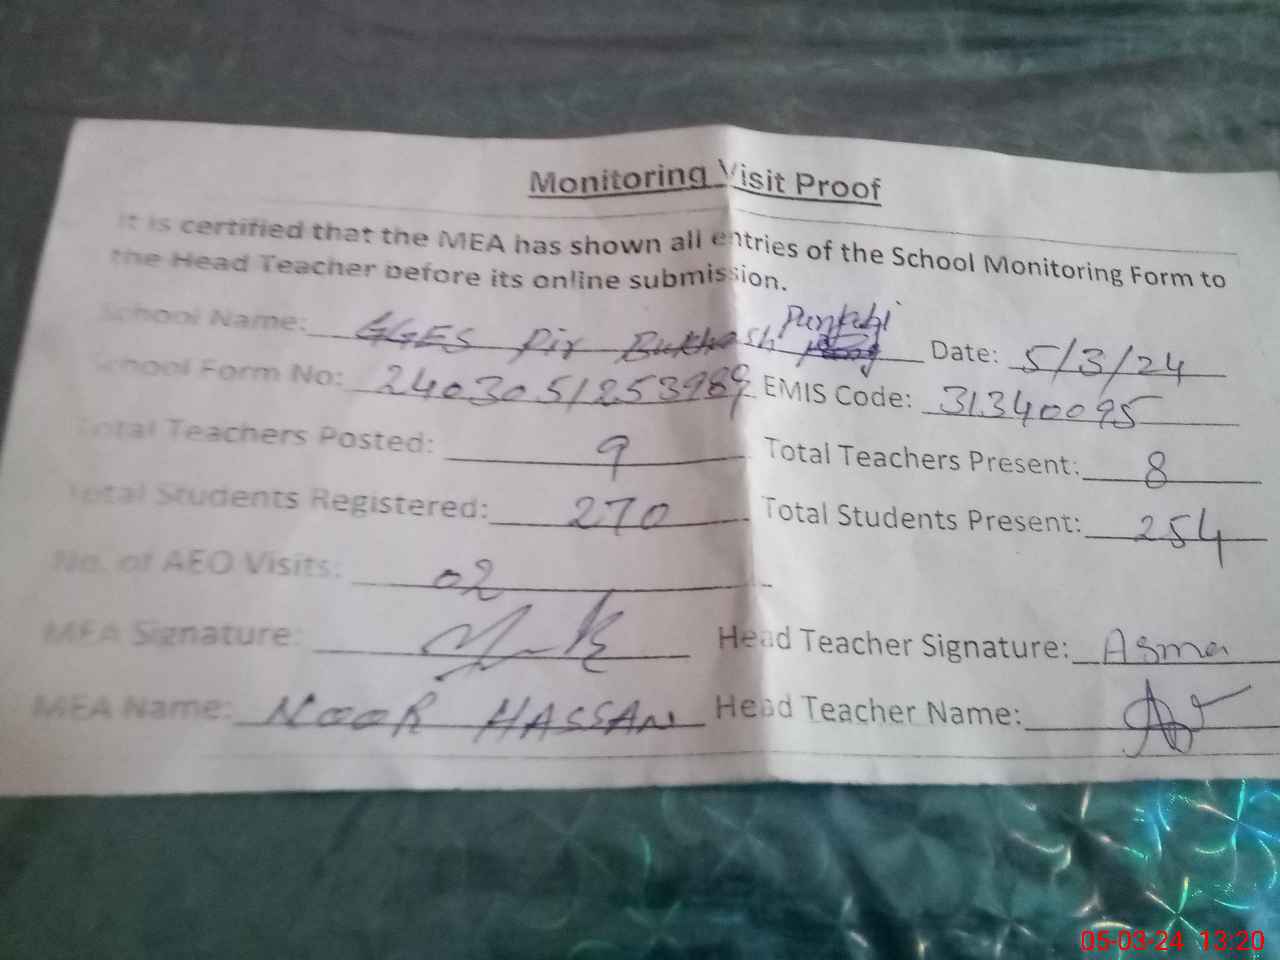 Monitoring Visit Proof
It is certified that the MEA has shown all entries of the School Monitoring Form to
the Head Teacher before its online submission.
School Name: GGES Pir Bukhash Date: 5/3/24
School Form No: EMIS Code: 31340095
Total Teachers Posted: 9 Total Teachers Present: 8
Total Students Registered: 270 Total Students Present: 254
No. of AEO Visits: 02
MEA Signature: Head Teacher Signature: Asma
MEA Name: NOOR HASSAN Head Teacher Name:
05-03-24 13:20